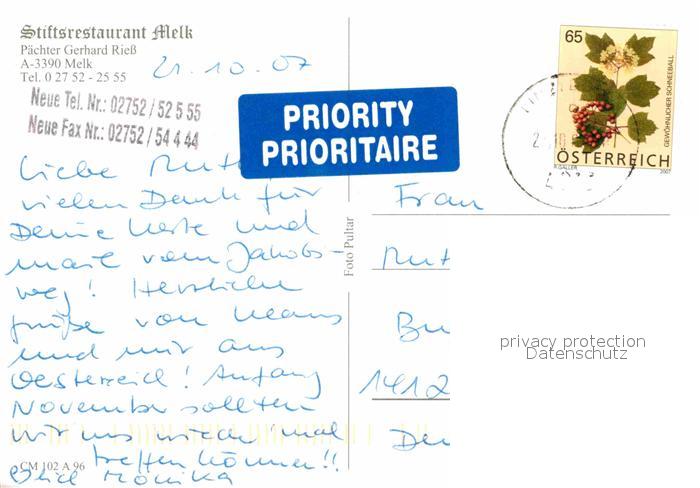 Stiftsrestaurant Melk
Pächter Gerhard Rieß
A-3390 Melk
Tel. 0 27 52 - 25 55
21.10.07
Neue Tel. Nr.: 02752 / 52 5 55
Neue Fax Nr.: 02752 / 54 4 44
PRIORITY
PRIORITAIRE
65
GEWÖHNLICHER SCHNEEBALL
ÖSTERREICH
R.GALLER
2007
Liebe Rut
vielen Dank für
Deine Karte und
mail vom Jakobs-
weg! Herzliche
Grüße von Klaus
und mir aus
Oesterreich! Anfang
November sollten
wir uns wieder 'mal
treffen können!!
Monika
CM 102 A 96
Foto Pultar
Frau
Rut
Bu
1412
De
privacy protection
Datenschutz